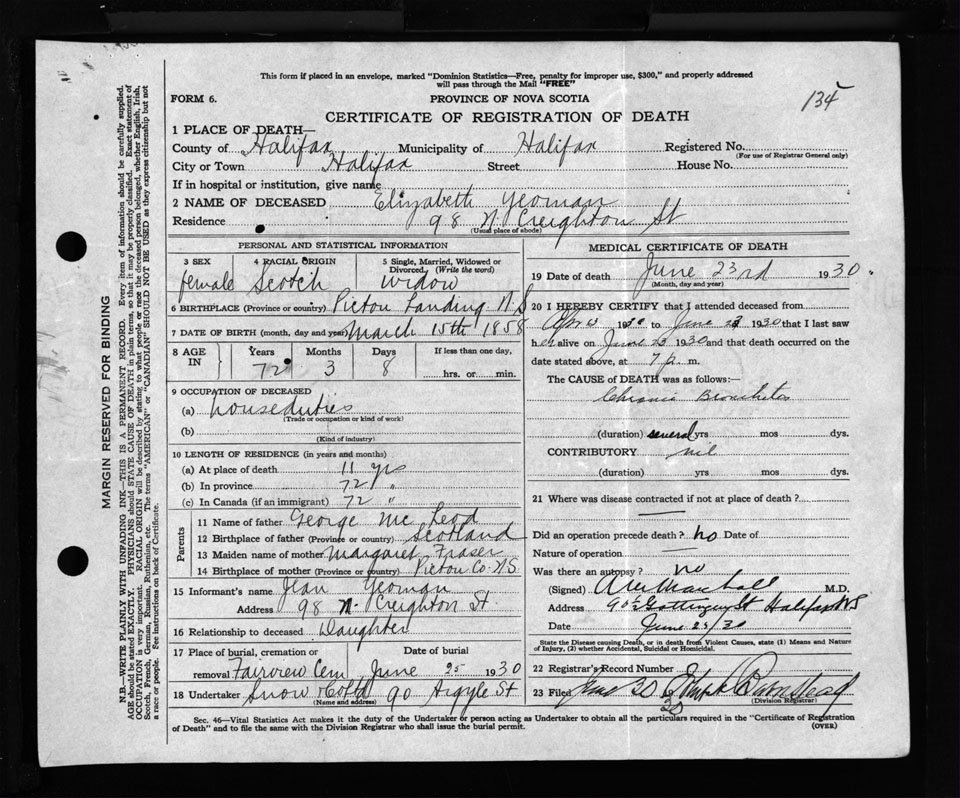 This form if placed in an envelope, marked "Dominion Statistics—Free, penalty for improper use, $300," and properly addressed
will pass through the Mail "FREE"
134
FORM 6.
PROVINCE OF NOVA SCOTIA
CERTIFICATE OF REGISTRATION OF DEATH
1 PLACE OF DEATH—
County of Halifax Municipality of Halifax Registered No.
(For use of Registrar General only)
City or Town Halifax Street House No.
If in hospital or institution, give name
2 NAME OF DECEASED Elizabeth Yeoman
Residence 98 N. Creighton St
(Usual place of abode)
PERSONAL AND STATISTICAL INFORMATION
3 SEX 4 RACIAL ORIGIN 5 Single, Married, Widowed or Divorced, (Write the word)
female Scotch Widow
6 BIRTHPLACE (Province or country) Pictou Landing N.S
7 DATE OF BIRTH (month, day and year) March 15th 1858
8 AGE IN Years Months Days If less than one day,
72 3 8 hrs. or min.
9 OCCUPATION OF DECEASED
(a) houseduties
(Trade or occupation or kind of work)
(b)
(Kind of industry)
10 LENGTH OF RESIDENCE (in years and months)
(a) At place of death 11 yrs
(b) In province 72 "
(c) In Canada (if an immigrant) 72 "
Parents
11 Name of father George Mc Leod
12 Birthplace of father (Province or country) Scotland
13 Maiden name of mother Margaret Fraser
14 Birthplace of mother (Province or country) Pictou Co. N.S.
15 Informant's name Jean Yeoman
Address 98 N. Creighton St.
16 Relationship to deceased Daughter
17 Place of burial, cremation or removal Date of burial
Fairview Cem June 25 1930
18 Undertaker Snow & Co Ltd 90 Argyle St
(Name and address)
MEDICAL CERTIFICATE OF DEATH
19 Date of death June 23rd 1930.
(Month, day and year)
20 I HEREBY CERTIFY that I attended deceased from
1930 to June 23 1930 that I last saw
her alive on June 23 1930 and that death occurred on the
date stated above, at 7 p. m.
The CAUSE OF DEATH was as follows:—
Chronic Bronchitis
(duration) several yrs mos dys.
CONTRIBUTORY nil
(duration) yrs mos dys.
21 Where was disease contracted if not at place of death?
Did an operation precede death? no Date of
Nature of operation
Was there an autopsy? no
(Signed) M.D.
Address Gottingen St Halifax NS
Date June 25/30
State the Disease causing Death, or in death from Violent Causes, state (1) Means and Nature of Injury, (2) whether Accidental, Suicidal or Homicidal.
22 Registrar's Record Number
23 Filed June 30
(Division Registrar)
Sec. 46—Vital Statistics Act makes it the duty of the Undertaker or person acting as Undertaker to obtain all the particulars required in the "Certificate of Registration
of Death" and to file the same with the Division Registrar who shall issue the burial permit.
(OVER)
MARGIN RESERVED FOR BINDING
N.B.—WRITE PLAINLY WITH UNFADING INK—THIS IS A PERMANENT RECORD. Every item of information should be carefully supplied.
AGE should be stated EXACTLY. PHYSICIANS should STATE CAUSE OF DEATH in plain terms, so that it may be properly classified. Exact statement of
OCCUPATION is very important. RACIAL ORIGIN will be described by stating to what people or race the deceased person belonged, whether English, Irish,
Scotch, French, German, Russian, Ruthenian, etc. The terms "AMERICAN" or "CANADIAN" SHOULD NOT BE USED as they express citizenship but not
a race or people. See instructions on back of Certificate.